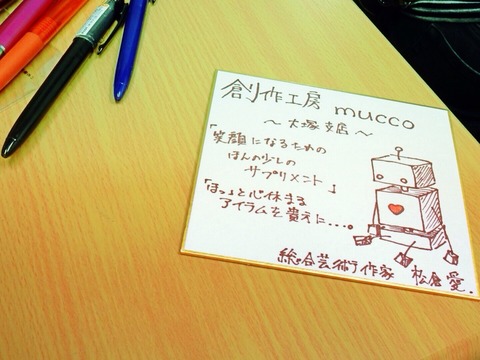 創作工房 mucco
～大塚支店～
「笑顔になるための
ほんの少しの
サプリメント」
「ほっ」と心休まる
アイテムを貴方に...。
総合芸術作家 松倉愛.